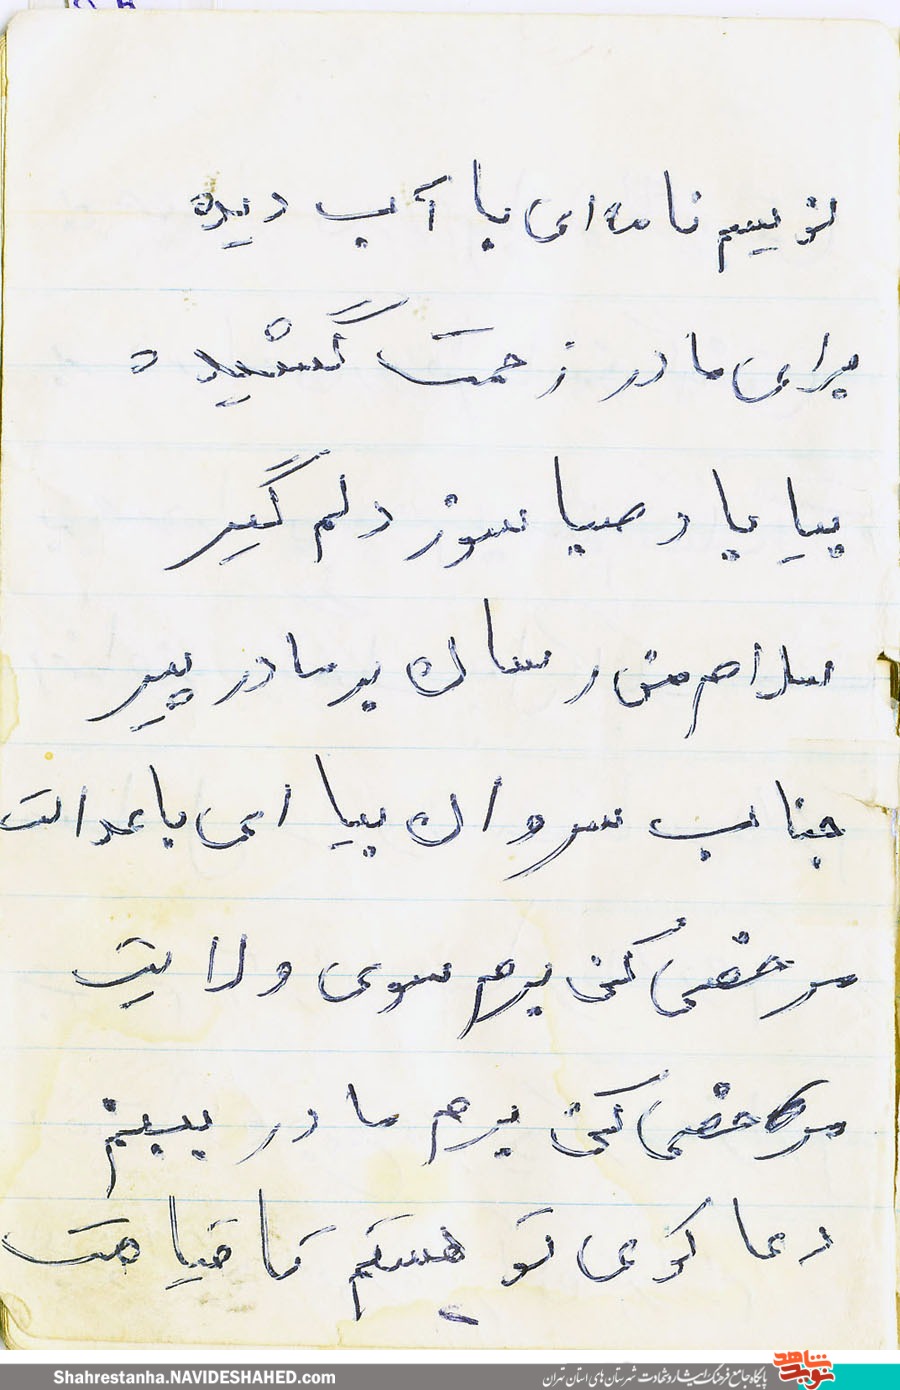 نویسم نامه ای با آب دیده
برای مادر زحمت کشیده
بیا باد صبا سوز دلم گیر
سلام من رسان بر مادر پیر
جناب سروان بیا ای باعدالت
مرخصی کن برم سوی ولایت
مرخصی کن برم مادر ببینم
دعا گوی تو هستم تا قیامت
Shahrestanha.NAVIDESHAHED.com
پایگاه جامع فرهنگ ایثار و شهادت شهرستان های استان تهران
نوید شاهد